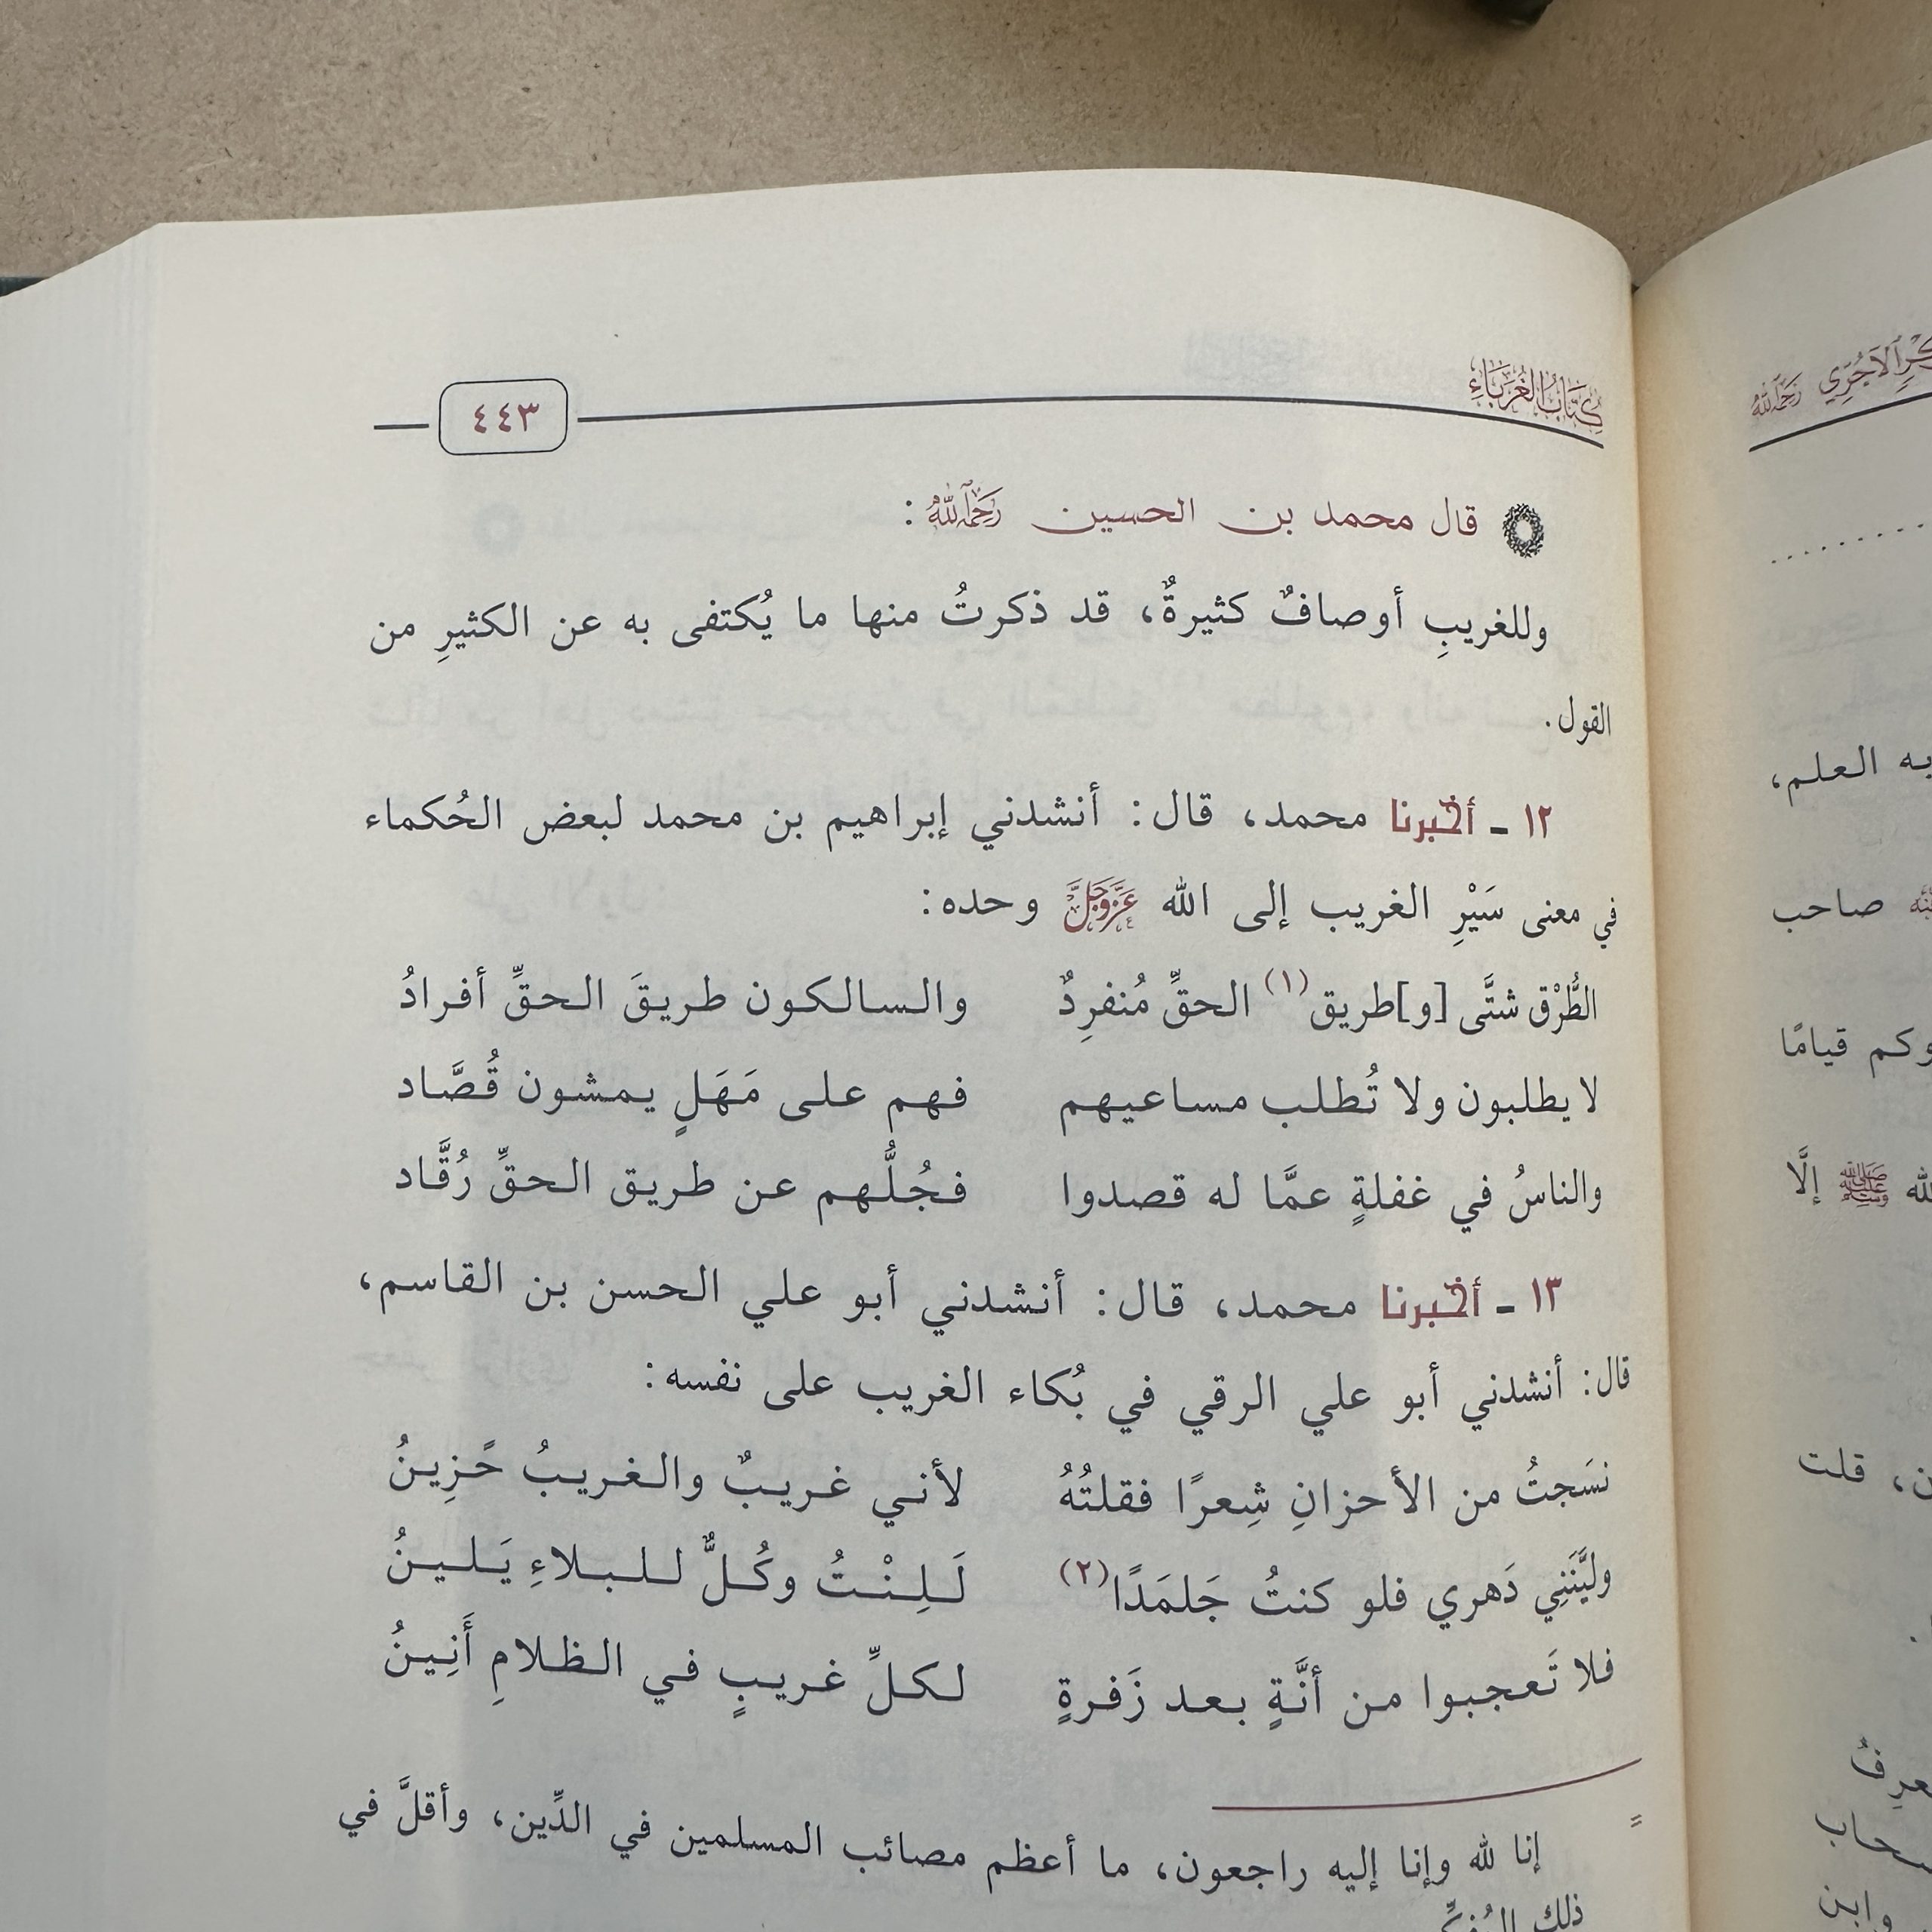 كتاب الغرباء
٤٤٣
قال محمد بن الحسين رَحِمَهُ اللَّهُ:
وللغريبِ أوصافٌ كثيرةٌ، قد ذكرتُ منها ما يُكتفى به عن الكثيرِ من
القول.
١٢ ـ أخبرنا محمد، قال: أنشدني إبراهيم بن محمد لبعض الحُكماء
في معنى سَيْرِ الغريب إلى الله عَزَّوَجَلَّ وحده:
الطُّرْق شتَّى [و]طريق(١) الحقِّ مُنفرِدٌ والسالكون طريقَ الحقِّ أفرادُ
لا يطلبون ولا تُطلب مساعيهم فهم على مَهَلٍ يمشون قُصَّاد
والناسُ في غفلةٍ عمَّا له قصدوا فجُلُّهم عن طريق الحقِّ رُقَّاد
١٣ ـ أخبرنا محمد، قال: أنشدني أبو علي الحسن بن القاسم،
قال: أنشدني أبو علي الرقي في بُكاء الغريب على نفسه:
نسَجتُ من الأحزانِ شِعرًا فقلتُهُ لأني غريبٌ والغريبُ حَزِينُ
وليَّنَنِي دَهري فلو كنتُ جَلمَدًا(٢) لَلِنْتُ وكُلٌّ للبلاءِ يَلينُ
فلا تَعجبوا من أنَّةٍ بعد زَفرةٍ لكلِّ غريبٍ في الظلامِ أَنِينُ
=
إنا لله وإنا إليه راجعون، ما أعظم مصائب المسلمين في الدِّين، وأقلَّ في
ذلك
الآجُرِّي رَحِمَهُ اللَّهُ
به العلم،
صاحب
وكم قيامًا
ﷺ إلَّا
قلت